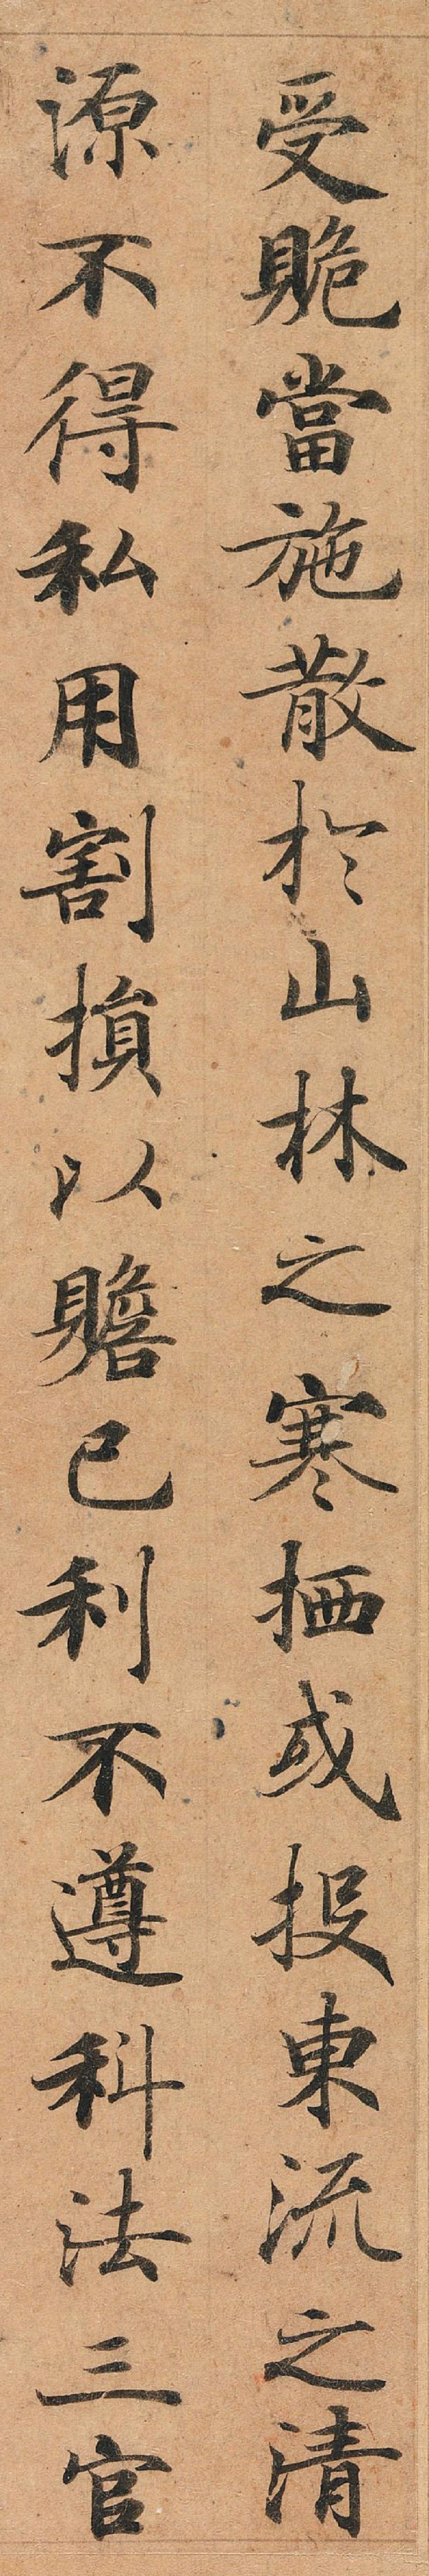 受賍當施散於山林之寒栖或投東流之清
源不得私用割損以贍已利不遵科法三官